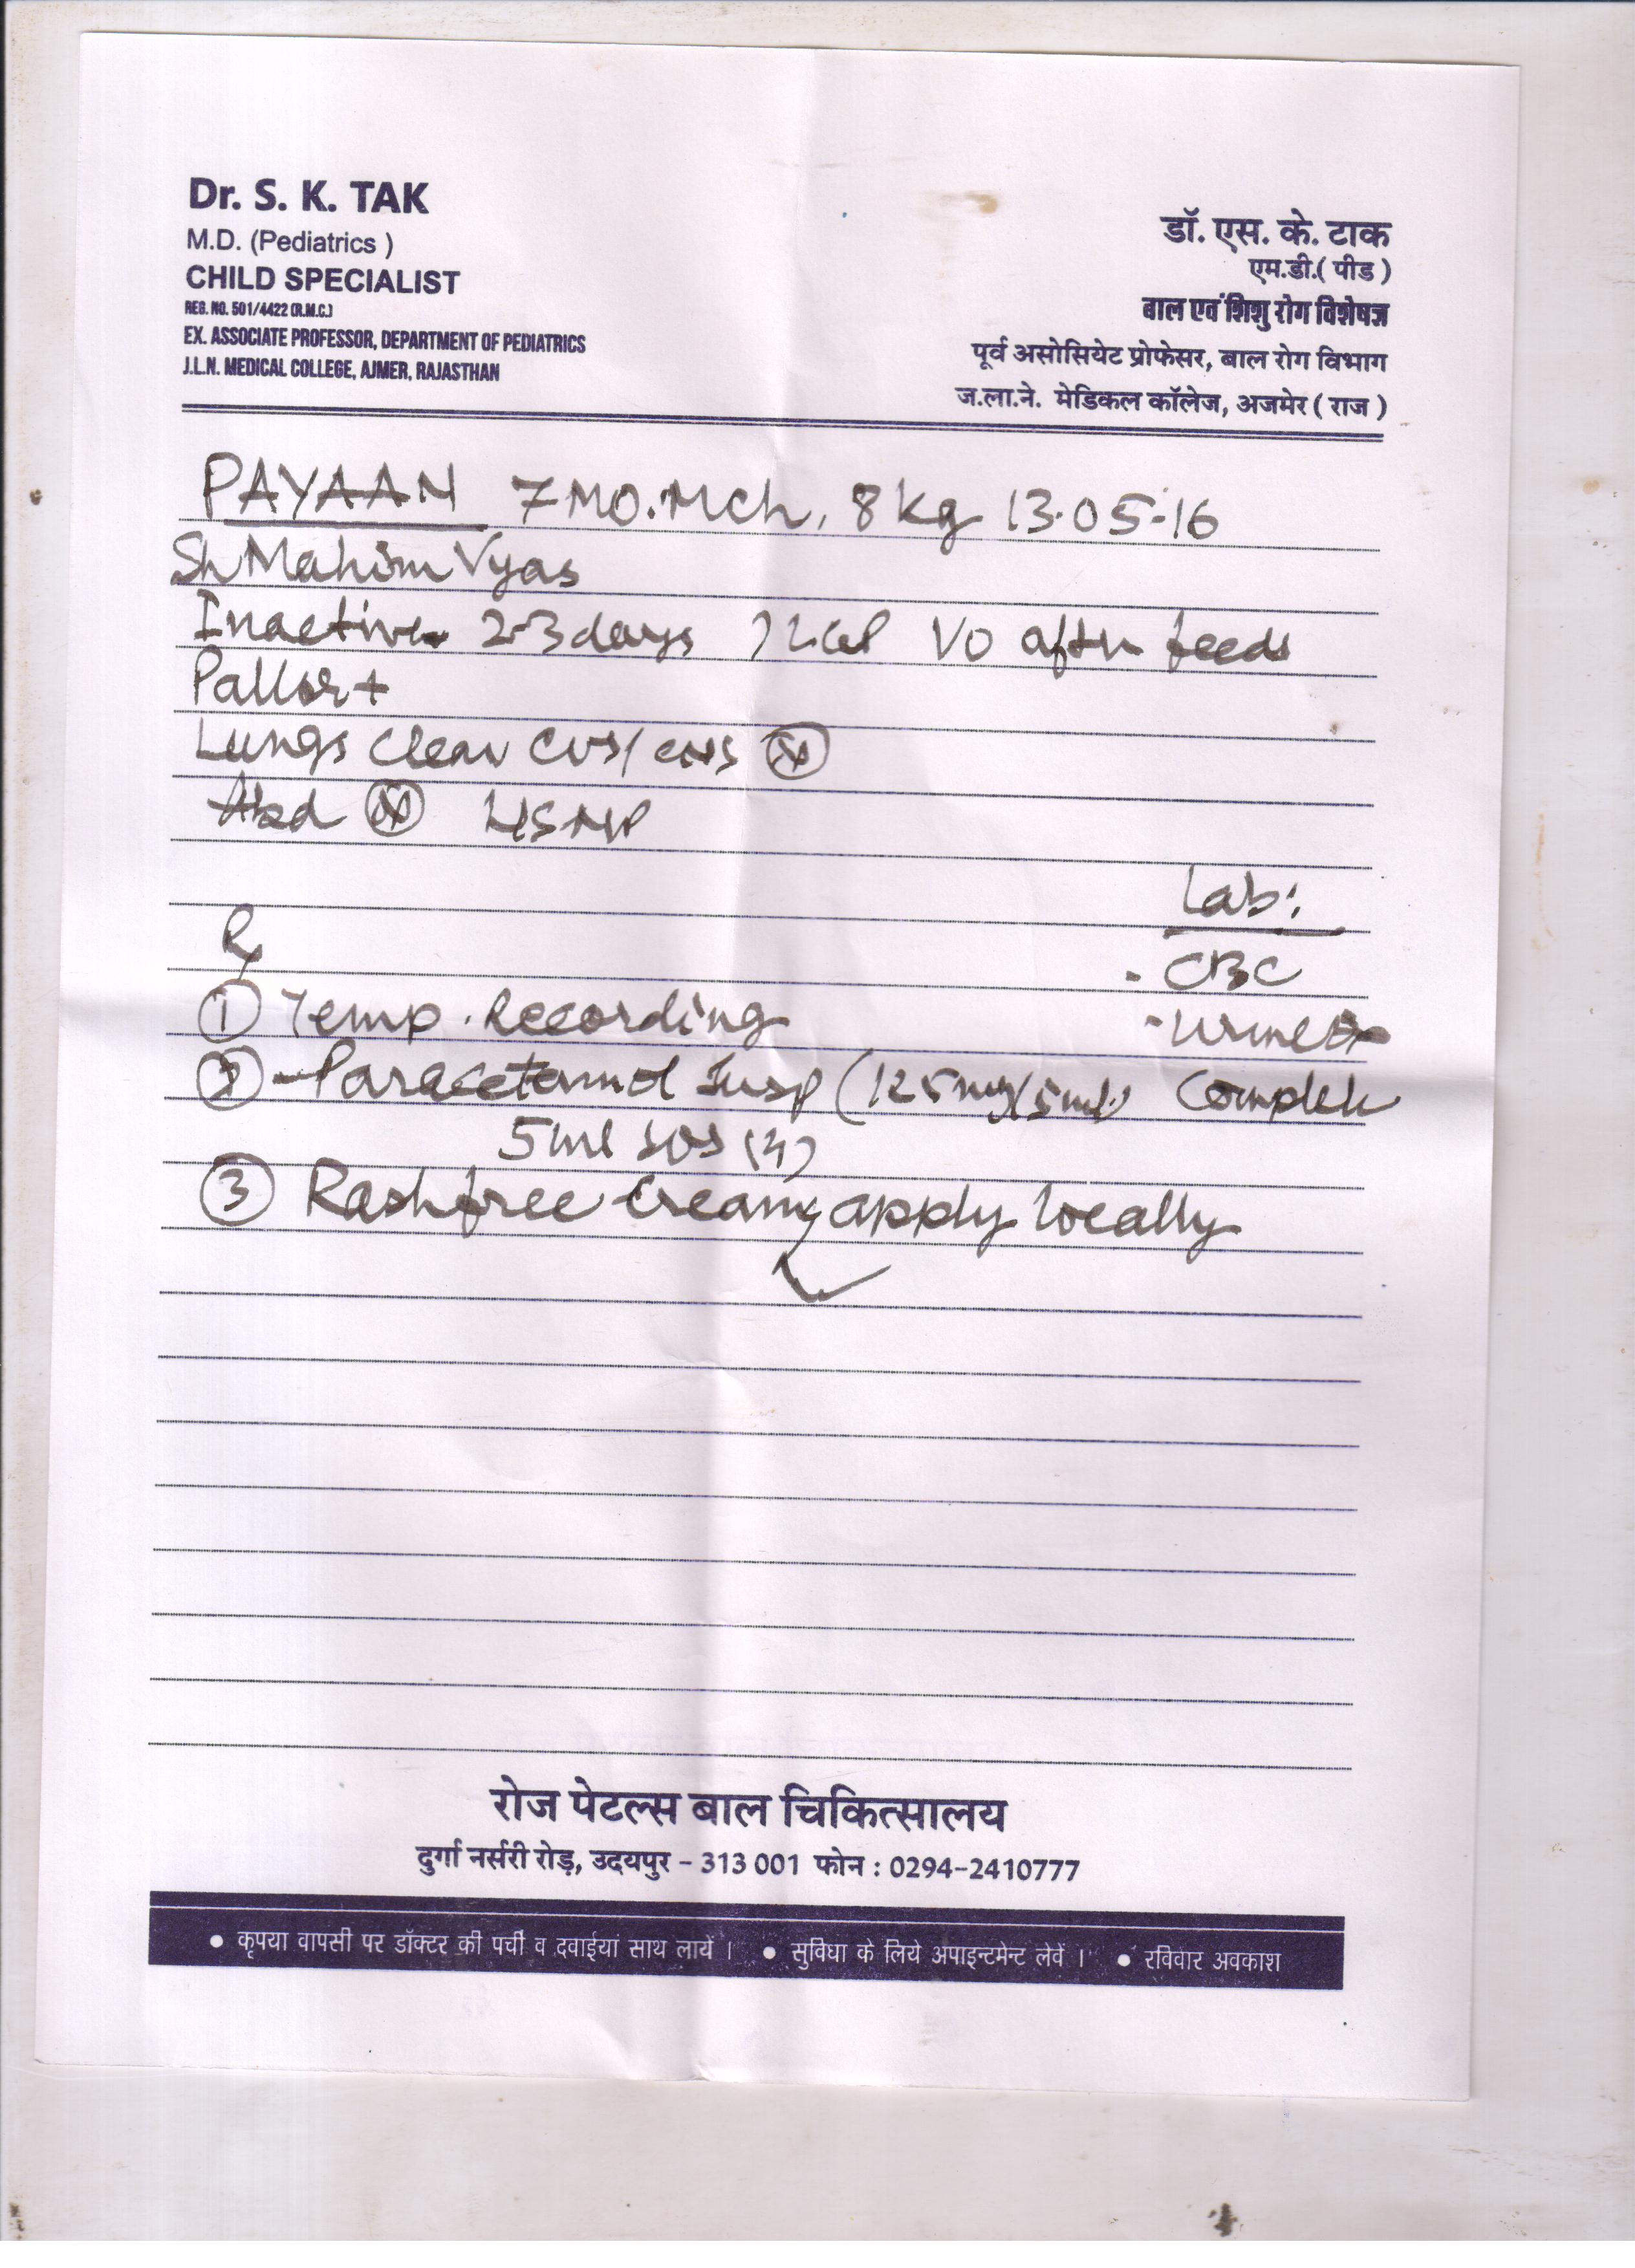 Dr. S. K. TAK
M.D. (Pediatrics )
CHILD SPECIALIST
REG. NO. 501/4422 (R.M.C.)
EX. ASSOCIATE PROFESSOR, DEPARTMENT OF PEDIATRICS
J.L.N. MEDICAL COLLEGE, AJMER, RAJASTHAN
डॉ. एस. के. टाक
एम.डी.( पीड )
बाल एवं शिशु रोग विशेषज्ञ
पूर्व असोसियेट प्रोफेसर, बाल रोग विभाग
ज.ला.ने. मेडिकल कॉलेज, अजमेर ( राज )
PAYAAN 7 MO. MCh, 8 kg 13.05.16
Sh Mahim Vyas
Inactive 2-3 days VO after feeds
Pallor +
Lungs clear CVS/ CNS N
Abd N LSNP
Rx
Lab:
- CBC
1 Temp. Recording
- urine
2 Paracetamol Susp (125mg/5ml)
Complete
5ml SOS (4)
3 Rashfree cream apply locally
रोज पेटल्स बाल चिकित्सालय
दुर्गा नर्सरी रोड़, उदयपुर - 313 001 फोन : 0294-2410777
• कृपया वापसी पर डॉक्टर की पर्ची व दवाईयां साथ लायें । • सुविधा के लिये अपाइन्टमेन्ट लेवें । • रविवार अवकाश